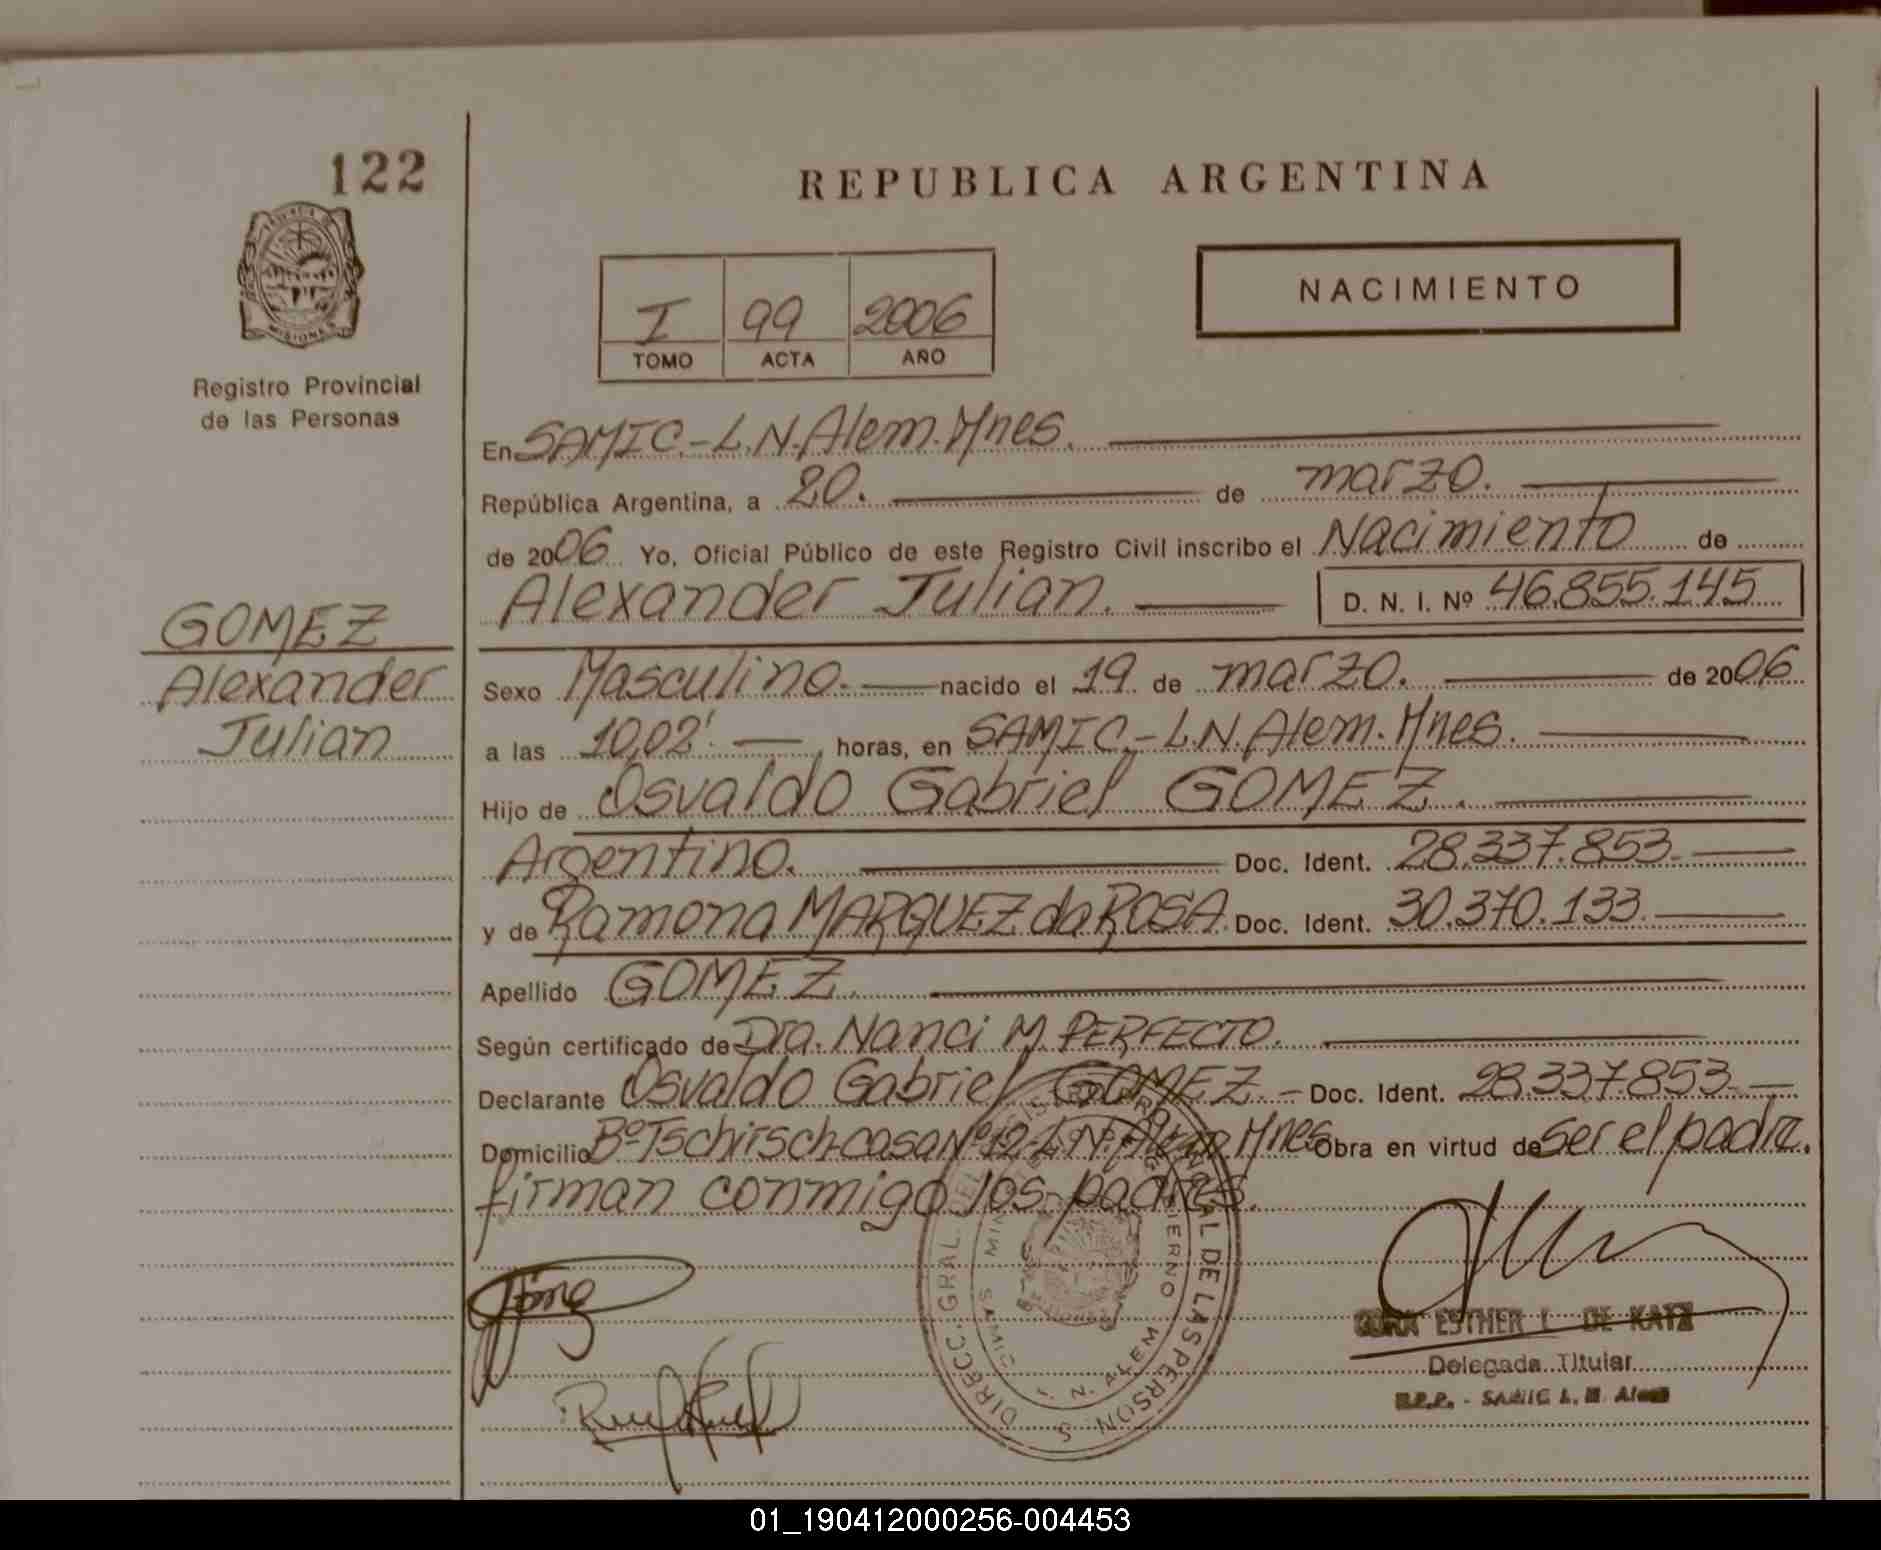 122
REPUBLICA ARGENTINA
MISIONES
Registro Provincial
de las Personas
I 99 2006
TOMO ACTA AÑO
NACIMIENTO
En SAMIC.-L.N.Alem.Mnes.
República Argentina, a 20. de marzo.
de 2006 Yo, Oficial Público de este Registro Civil inscribo el Nacimiento de
Alexander Julian. D. N. I. Nº 46.855.145
GOMEZ
Alexander
Julian
Sexo Masculino. nacido el 19 de marzo. de 2006
a las 10,02' horas, en SAMIC.-L.N.Alem.Mnes.
Hijo de Osvaldo Gabriel GOMEZ.
Argentino. Doc. Ident. 28.337.853.
y de Ramona MARQUEZ da ROSA. Doc. Ident. 30.370.133.
Apellido GOMEZ.
Según certificado de Dra. Nanci M. PERFECTO.
Declarante Osvaldo Gabriel GOMEZ.- Doc. Ident. 28.337.853.-
Domicilio Bº Tschirsch-casa Nº 12-L.N.Alem Mnes Obra en virtud de ser el padre.
firman conmigo los padres.
DIRECC. GRAL. DEL REGISTRO PROVINCIAL DE LAS PERSON S
SAMIC L. N. ALEM
ESTHER L. DE KATZ
Delegada Titular
R.P.P. - SAMIC L. N. Alem
01_190412000256-004453